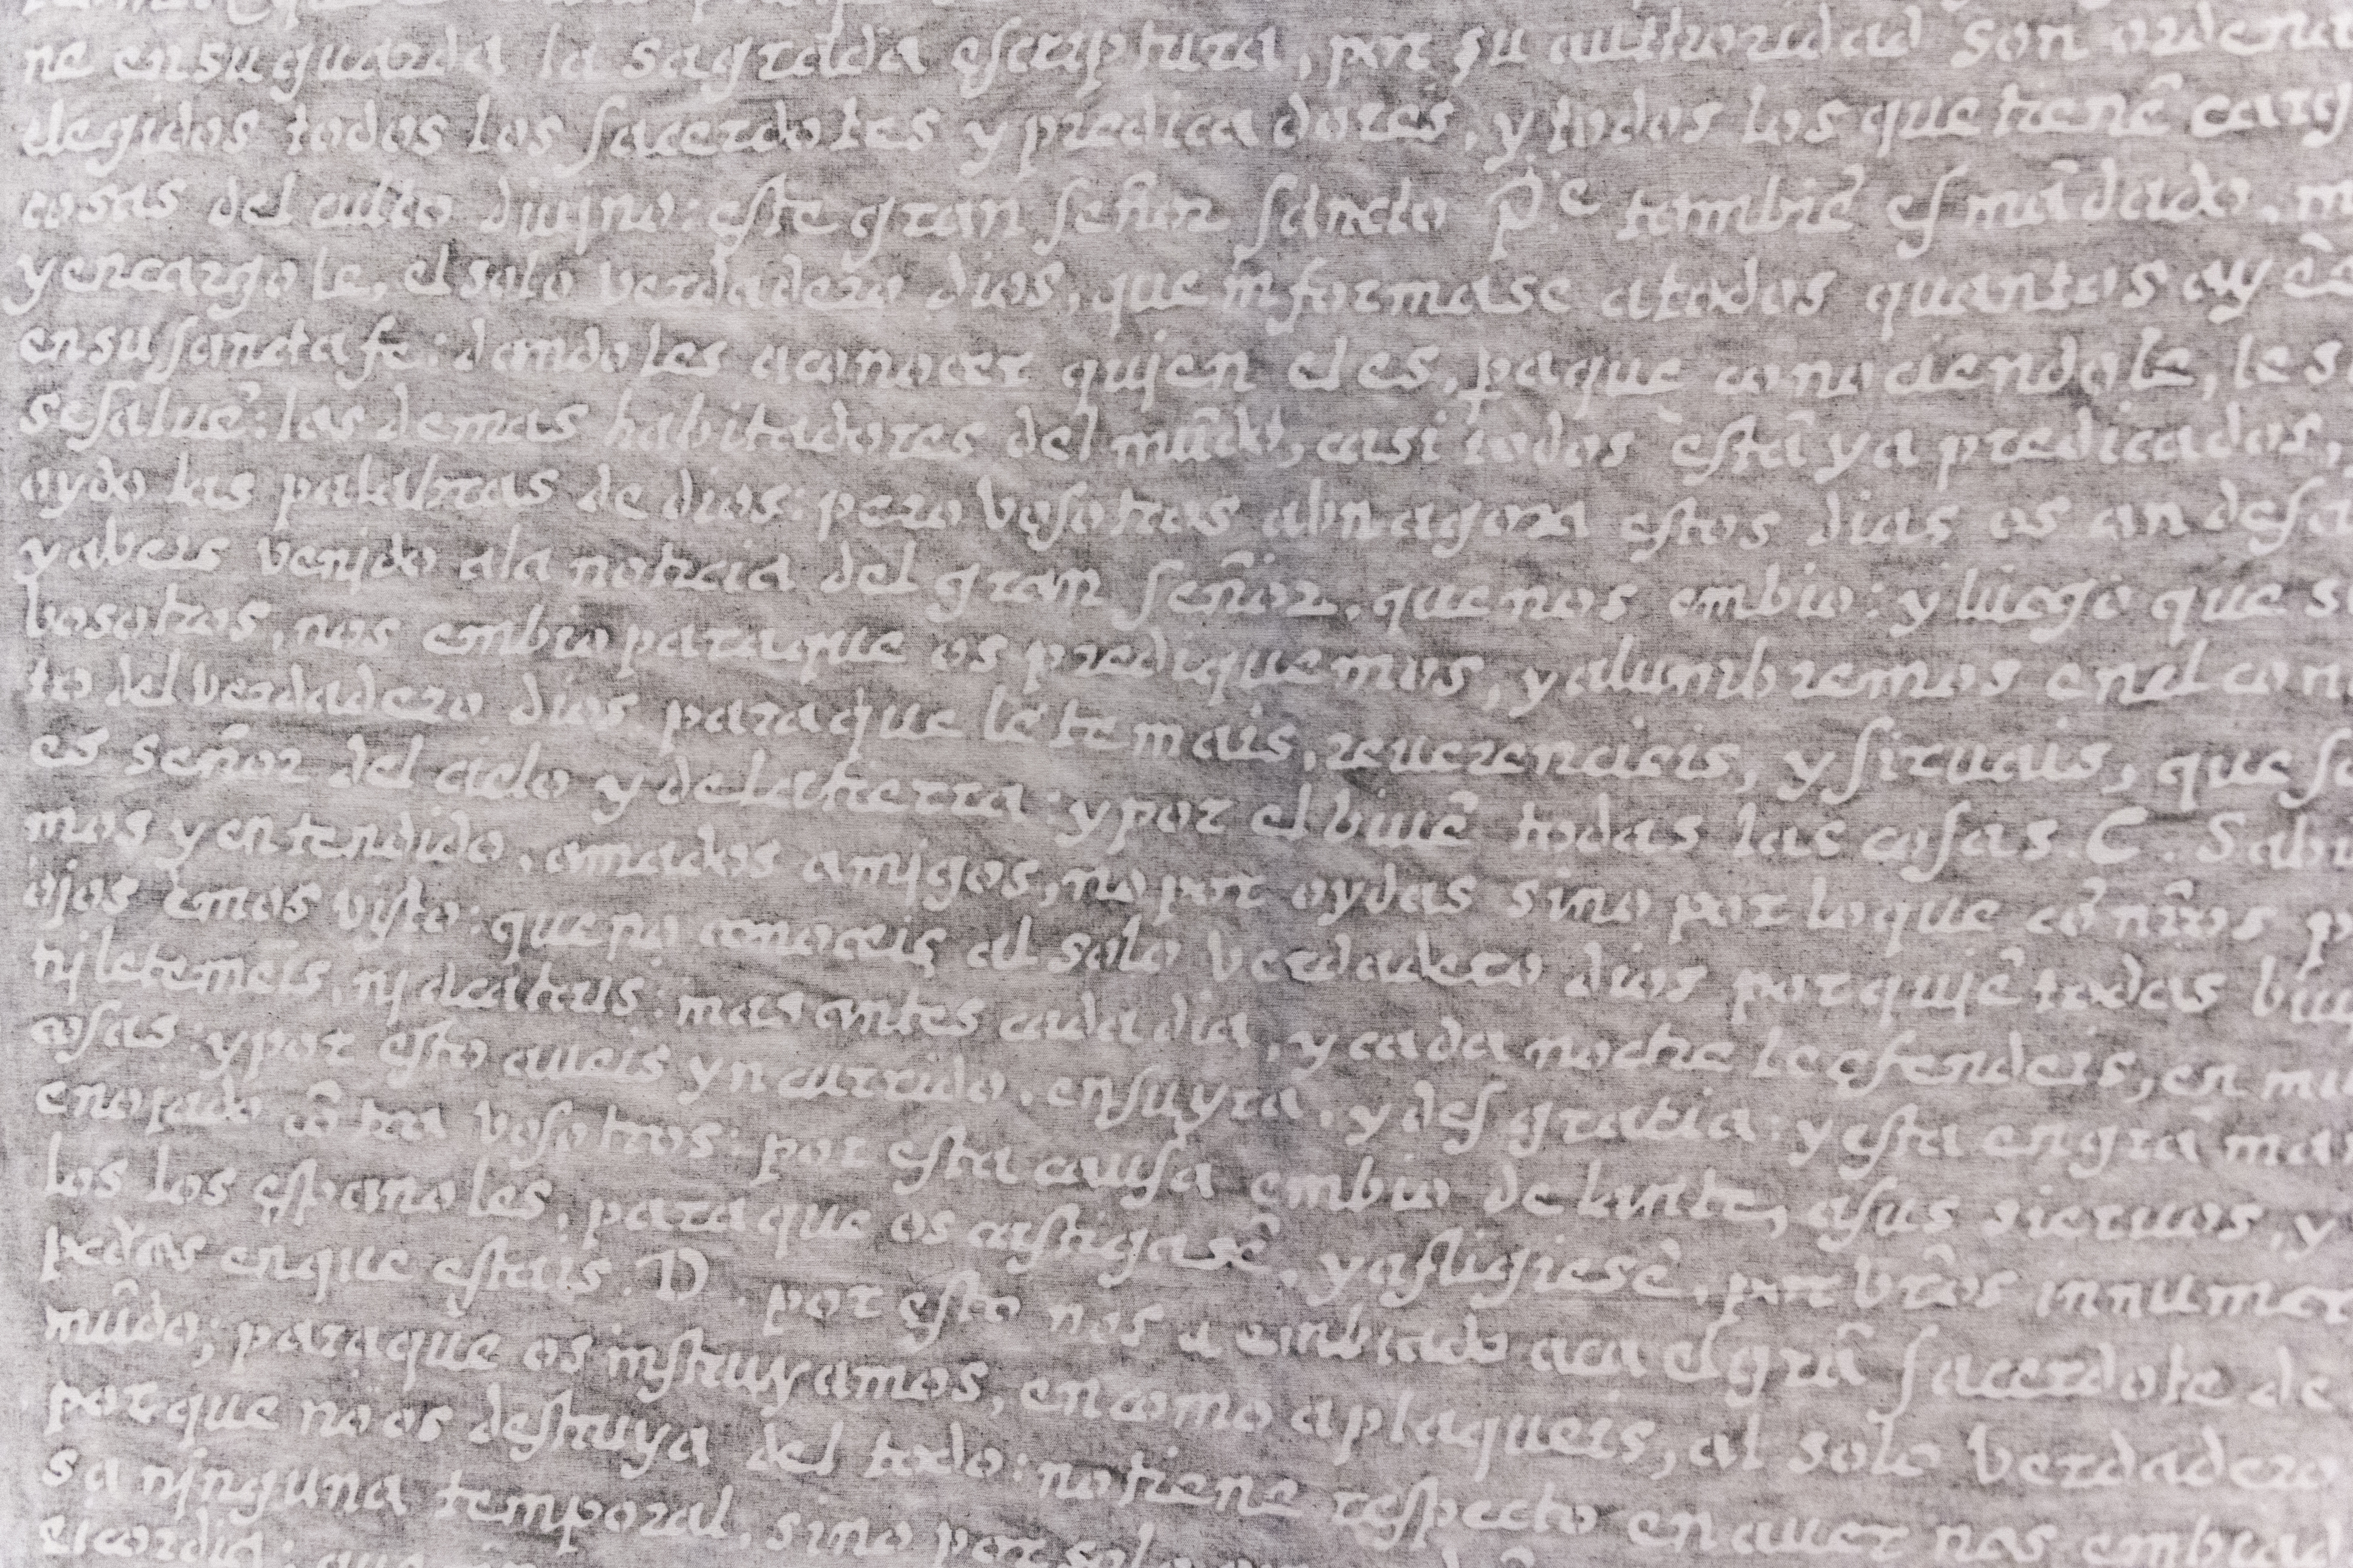 ne ensu guarda la sagrada escriptura, por su authoridad son ordena
elegidos todos los sacerdotes y predicadores, y todos los que tienē carg
cosas del culto diujno: este gran señor sancto P.e tambiē es mādado, m
y encargole, el solo verdadero dios, que informase atodos quantos ay ē
ensu sancta fe: dandoles aconocer qujen el es, paque conociendole, le s
se saluē: los demas habitadores del mūdo, casi todos estā ya predicados,
oydo las palabras de dios: pero vosotros abn agora estos dias os an desa
y abeis venjdo ala noticia del gran señor, que nos embio: y luego que su
bosotros, nos embio paraque os prediquemos, y alumbremos enel con
to del verdadero dios paraque le temais, reuerencieis, y siruais, que so
es señor del cielo y dela tierra: y por el biuē todas las cosas. C. Sabi
mos y entendido, amados amjgos, no por oydas sino por loque cō nr̄os p
ojos emos visto: que no conoceis al solo verdadero dios por qujē todas biu
nj le temeis, nj acatais: mas antes cada dia, y cada noche le ofendeis, en mu
cosas: y por esto aueis yncurrido, en su yra, y desgratia: y esta en grā man
enojado cōtra vosotros: por esta causa embio delante, a sus sieruos, y
los los españoles, para que os castigasē, y afligiesē, por vr̄os innumer
pedos enque estais. D. por esto nos a embiado aca el grā sacerdote de
mūdo; paraque os instruyamos, en como aplaqueis, al solo verdadero
porque no os destruya del todo: no tiene respecto en auer nos embiad
sa njnguna temporal, sino por solo
ricordia: que